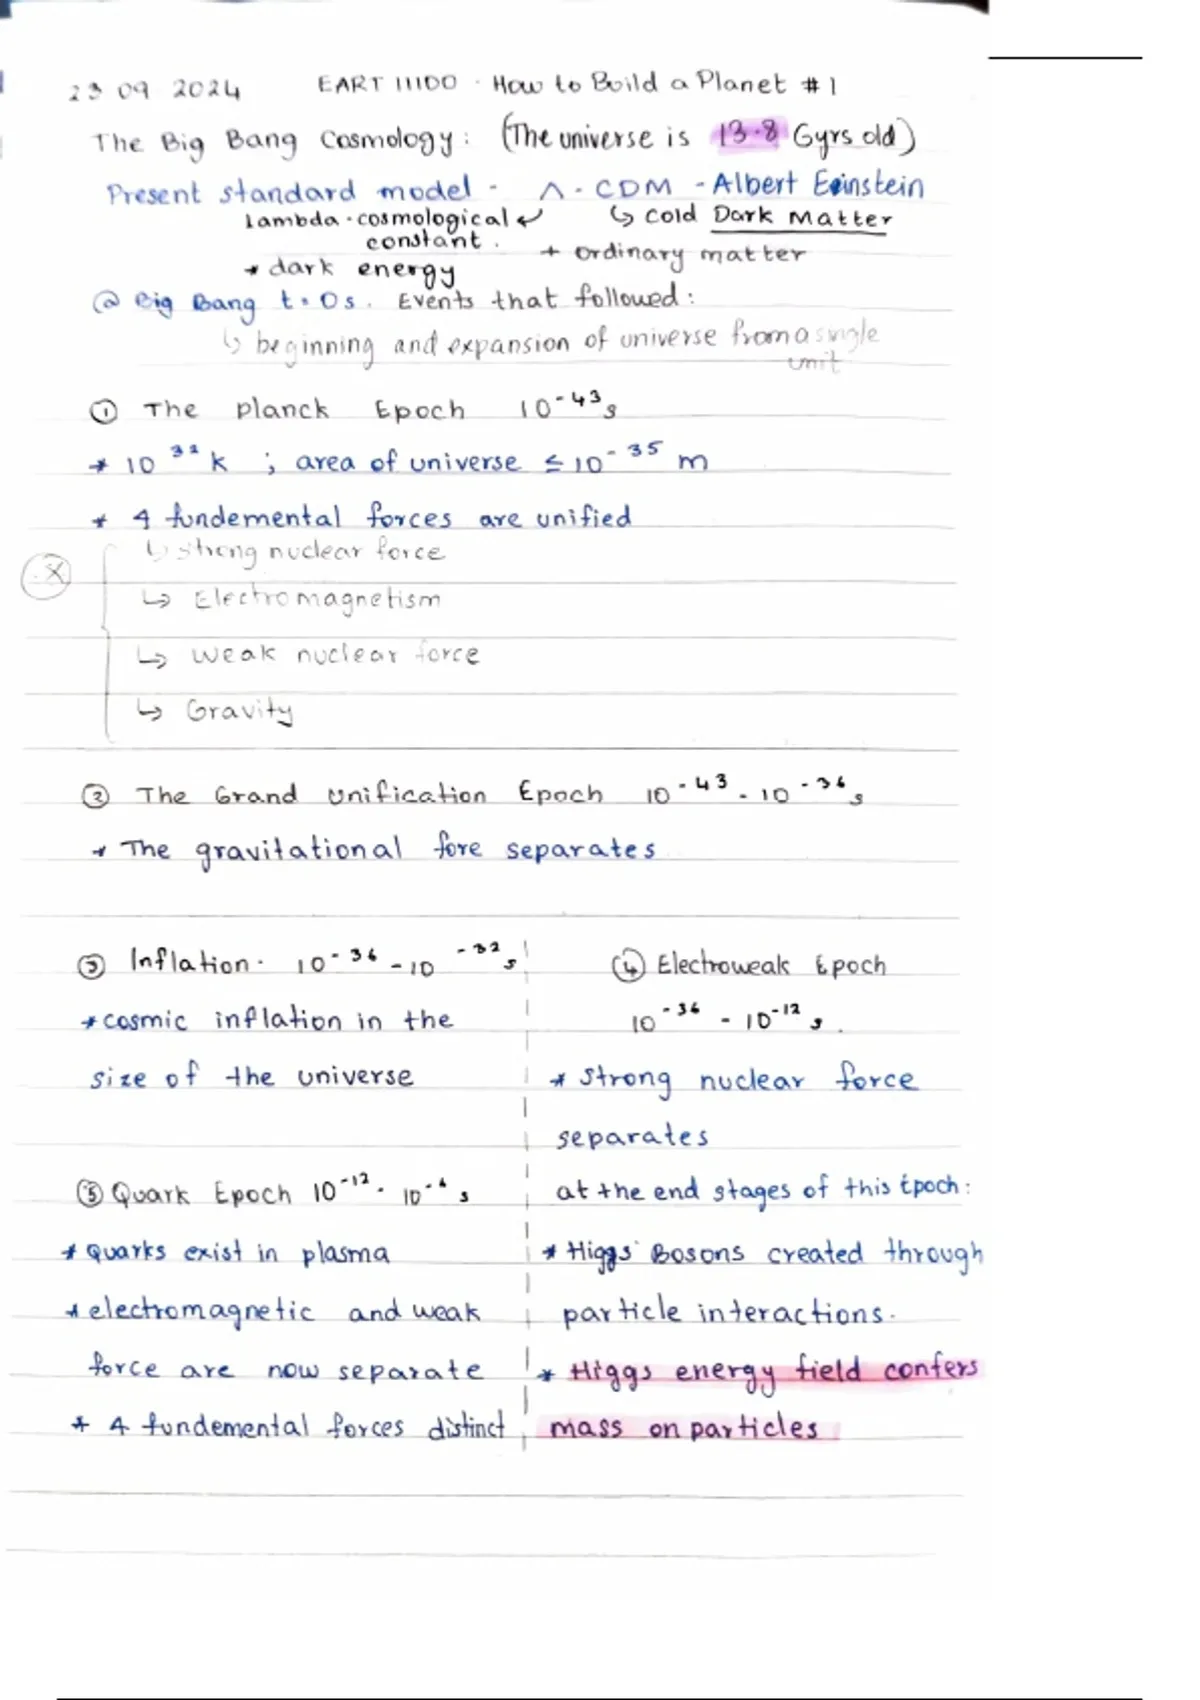 23 09 2024 EART 11100 - How to Build a Planet #1
The Big Bang Cosmology: (The universe is 13.8 Gyrs old)
Present standard model - Λ - CDM - Albert Eeinstein
Lambda - cosmological ↵ ↳ cold Dark Matter
constant. + ordinary matter
* dark energy
@ Big Bang t = 0s. Events that followed:
↳ beginning and expansion of universe from a single
unit
① The Planck Epoch 10⁻⁴³s
* 10³² k ; area of universe ≤ 10⁻³⁵ m
* 4 fundemental forces are unified
↳ strong nuclear force
* ↳ Electromagnetism
↳ weak nuclear force
↳ Gravity
② The Grand Unification Epoch 10⁻⁴³ - 10⁻³⁶s
* The gravitational fore separates
③ Inflation - 10⁻³⁶ - 10⁻³²s
* cosmic inflation in the
size of the universe
④ Electroweak Epoch
10⁻³⁶ - 10⁻¹²s.
* Strong nuclear force
separates
at the end stages of this Epoch:
* Higgs' Bosons created through
particle interactions.
* Higgs energy field confers
mass on particles
⑤ Quark Epoch 10⁻¹² - 10⁻⁶s
* Quarks exist in plasma
* electromagnetic and weak
force are now separate
* 4 fundemental forces distinct